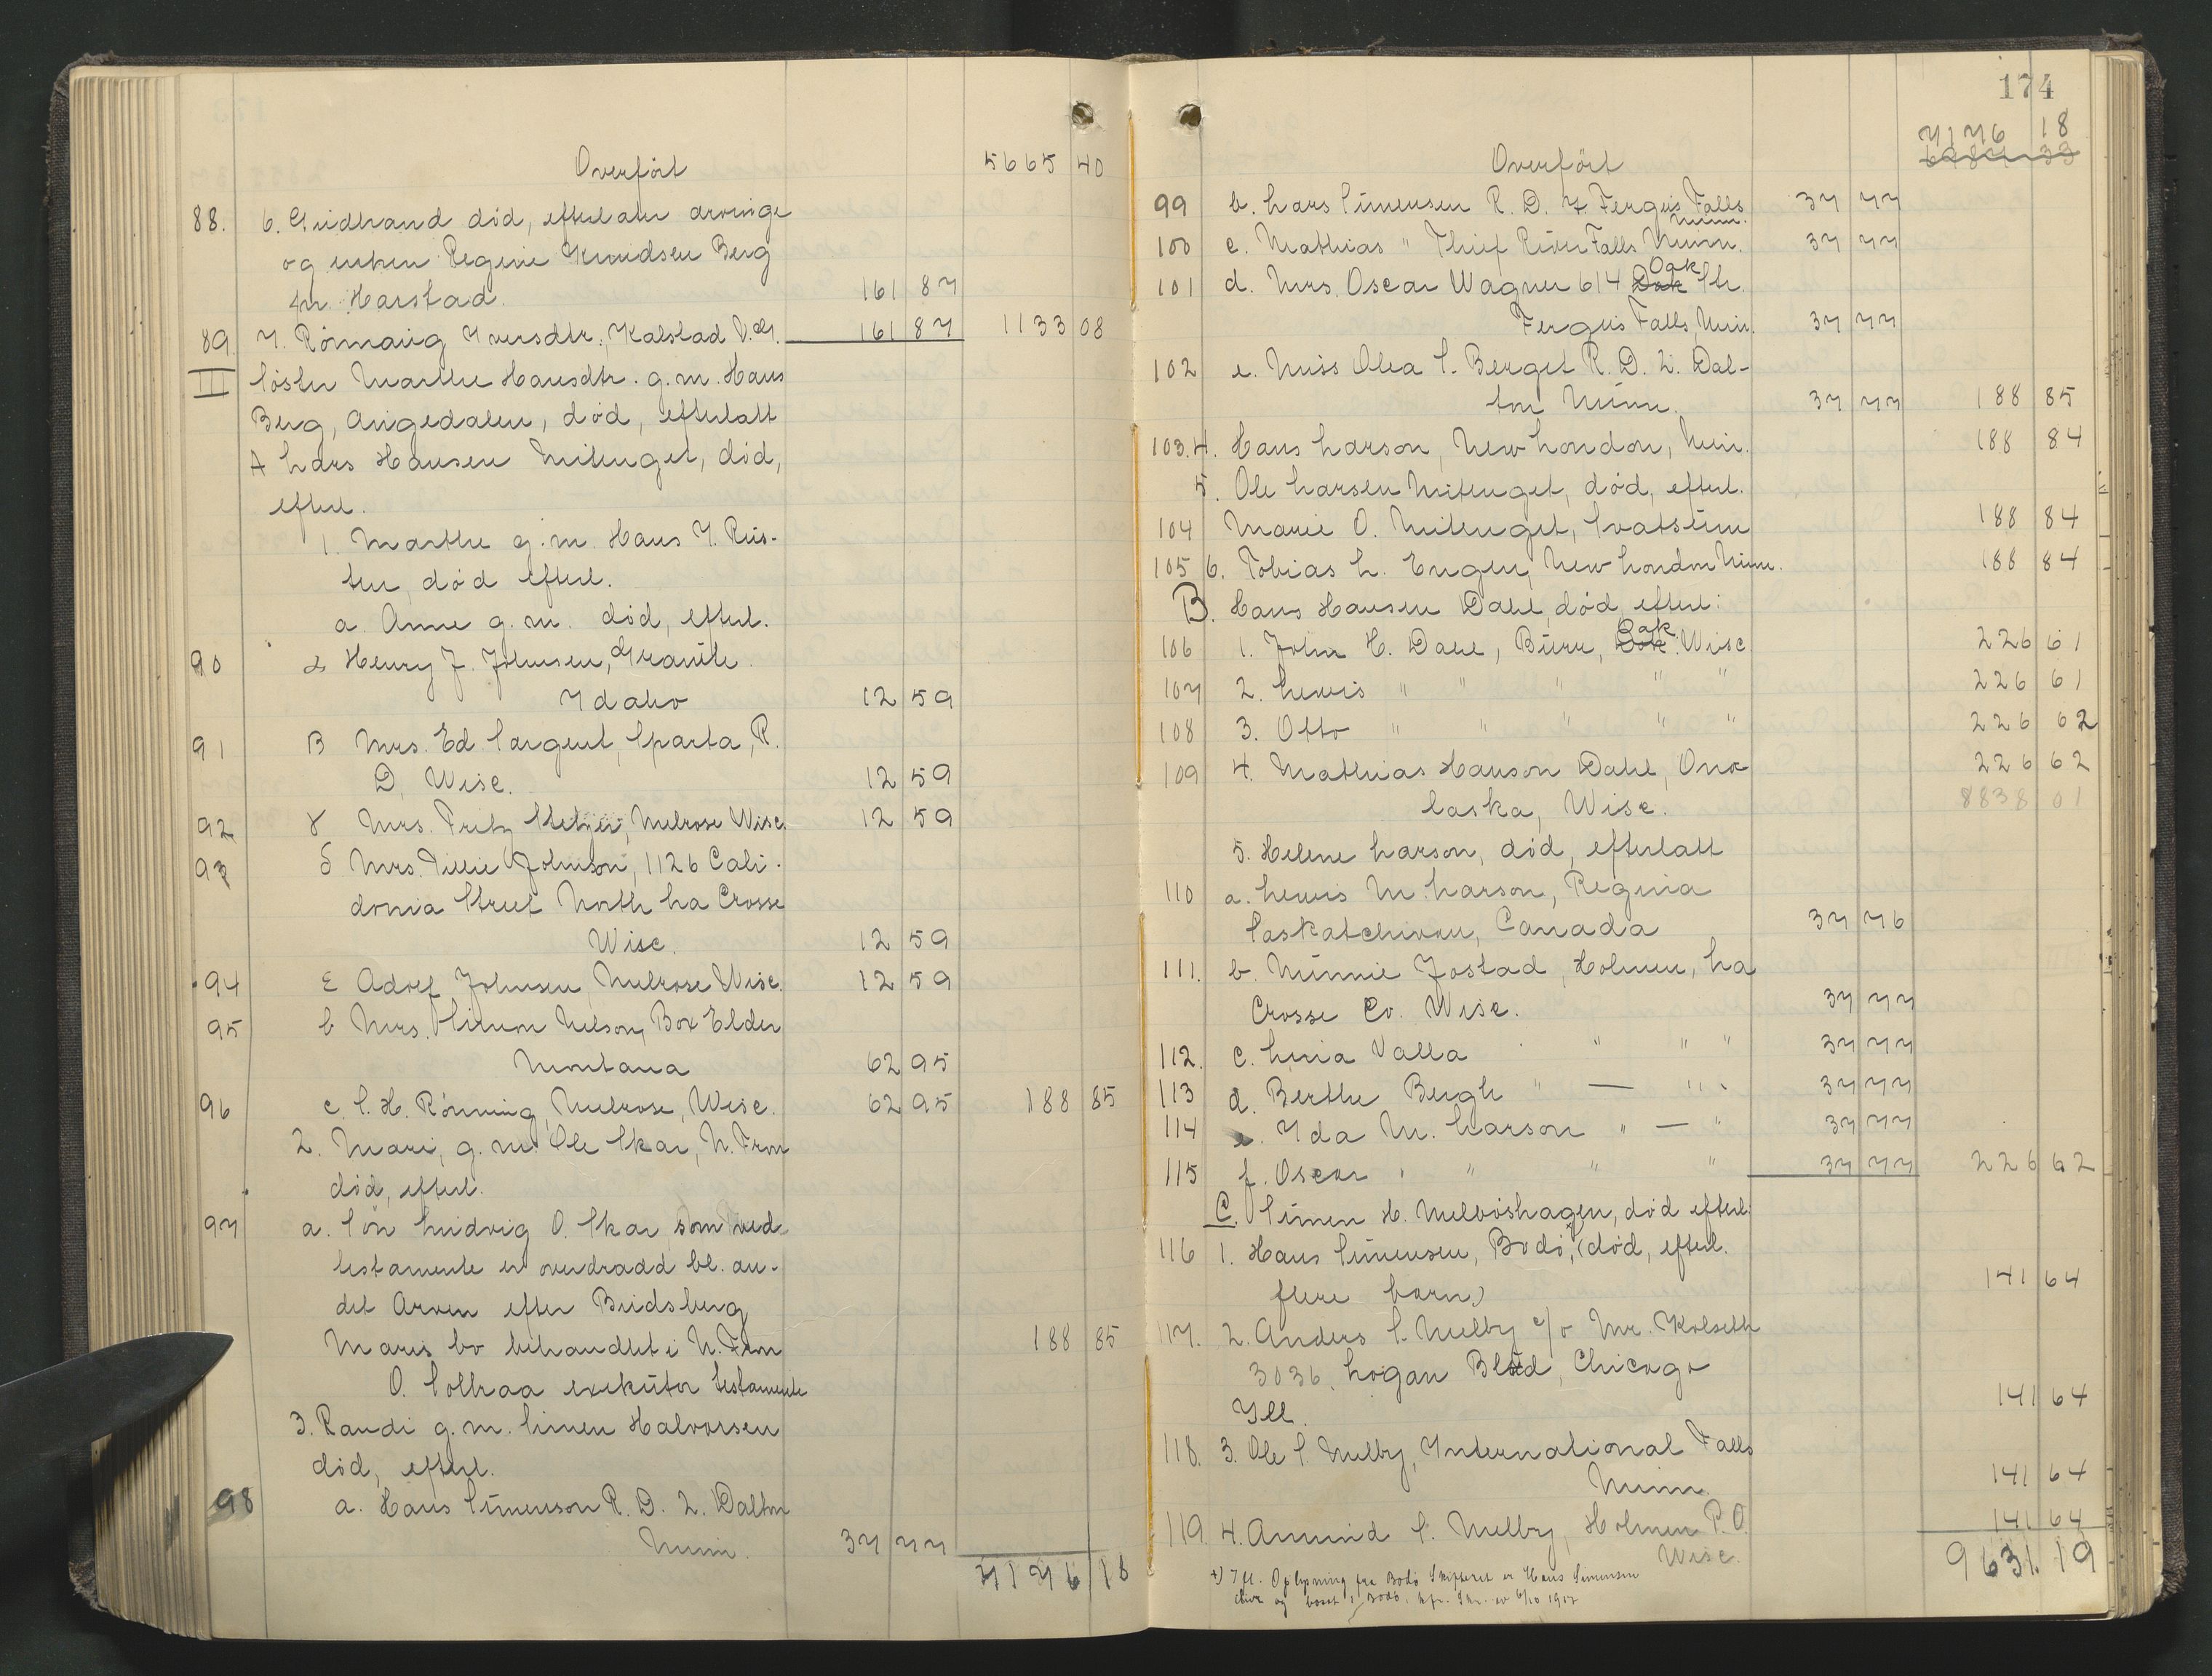 Overført 5665 40
88. 6. Gudbrand död, efterl. arvinge
og enken Regine Knudsen Berg
Harstad. 161 87
89. 7. Rönnaug Iversdtr. Kalstad V.Sl. 161 87 1133 08
III Söster Marthe Hansdtr. g.m. Hans
Berg, Angedalen, död, efterlatt
A Lars Hansen Militenget, död,
efterl.
1. Marthe g.m. Hans I. Rus-
ten, död efterl.
a. Anne g.m. död, efterl.
90 α Henry J. Johnsen, Granite
Idaho 12 59
91 β Mrs. Ed Sargent, Sparta, R.
D. Wisc. 12 59
92 γ Mrs. Fritz Melrose Wisc. 12 59
93 δ Mrs. Tillie Johnson, 1126 Cali-
donia Street North La Crosse
Wisc. 12 59
94 ε Adolf Johnsen Melrose Wisc. 12 59
95 b Mrs. Simon Nelson, Box Elder
Montana 62 95
96 c. S. H. Rönning, Melrose, Wisc. 62 95 188 85
2. Mari, g.m. Ole Skar, N. Fron
död, efterl.
97 a. Sön Ludvig O. Skar som ved
testamente er overdradd bl. an-
det Arven efter Budsberg
Maris bo behandlet i N. Fron 188 85
O. Solbraa exekutor testamente
3. Randi g.m. Simen Halvorsen
död, efterl.
98 a. Hans Simenson R. D. 2. Dalton
Minn. 37 77
7176 18
174
7176 18
Overført
99 b. Lars Simensen R. D. 7. Fergus Falls Minn. 37 77
100 c. Mathias " Thief River Falls Minn. 37 77
101 d. Mrs. Oscar Wagner 614 Oak Str.
Fergus Falls, Minn. 37 77
102 e. Miss Olea S. Berget R. D. 2. Dal-
ton Minn. 37 77 188 85
103. 4. Hans Larson, New London, Minn. 188 84
5. Ole Larsen Militenget, död, efterl.
104 Marie O. Militenget, Svatsum 188 84
105 6. Tobias L. Engen, New London Minn. 188 84
B. Hans Hansen Dahl, död, efterl:
106 1. John H. Dahl, Burr, Oak Wisc 226 61
107 2. Lewis " " " " " 226 61
108 3. Otto " " " " " 226 62
109 4. Mathias Hanson Dahl, Ona-
laska, Wisc. 226 62
8838 01
5. Helene Larson, död, efterlatt
110 a. Lewis M. Larson, Regina
Saskatchivan, Canada 37 76
111. b. Minnie Jostad, Holmen, La
Crosse Co. Wisc. 37 77
112. c. Lina Valla " " " 37 77
113 d. Berthe Bergh " — " " 37 77
114 e. Ida M. Larson " — " 37 77
115 f. Oscar " " " " 37 77 226 62
C. Simen H. Melböshagen, död efterl:
116 1. Hans Simensen, Bodö, (död, efterl.
flere barn) 141 64
117. 2. Anders S. Melby c/o Mr. Kolseth
3036. Logan Blvd, Chicago
Ill. 141 64
118. 3. Ole S. Melby, International Falls
Minn. 141 64
119. 4. Amund S. Melby, Holmen P.O. 141 64
Wisc.
9631. 19
+) Ifl. Oplysning fra Bodö Skifteret er Hans Simensen
ilive og bosat i Bodö. av 6/10 1917